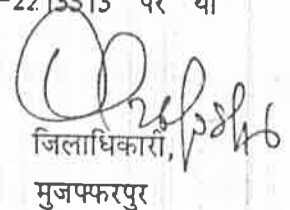 -2213313 पर या
जिलाधिकारी,
मुजफ्फरपुर